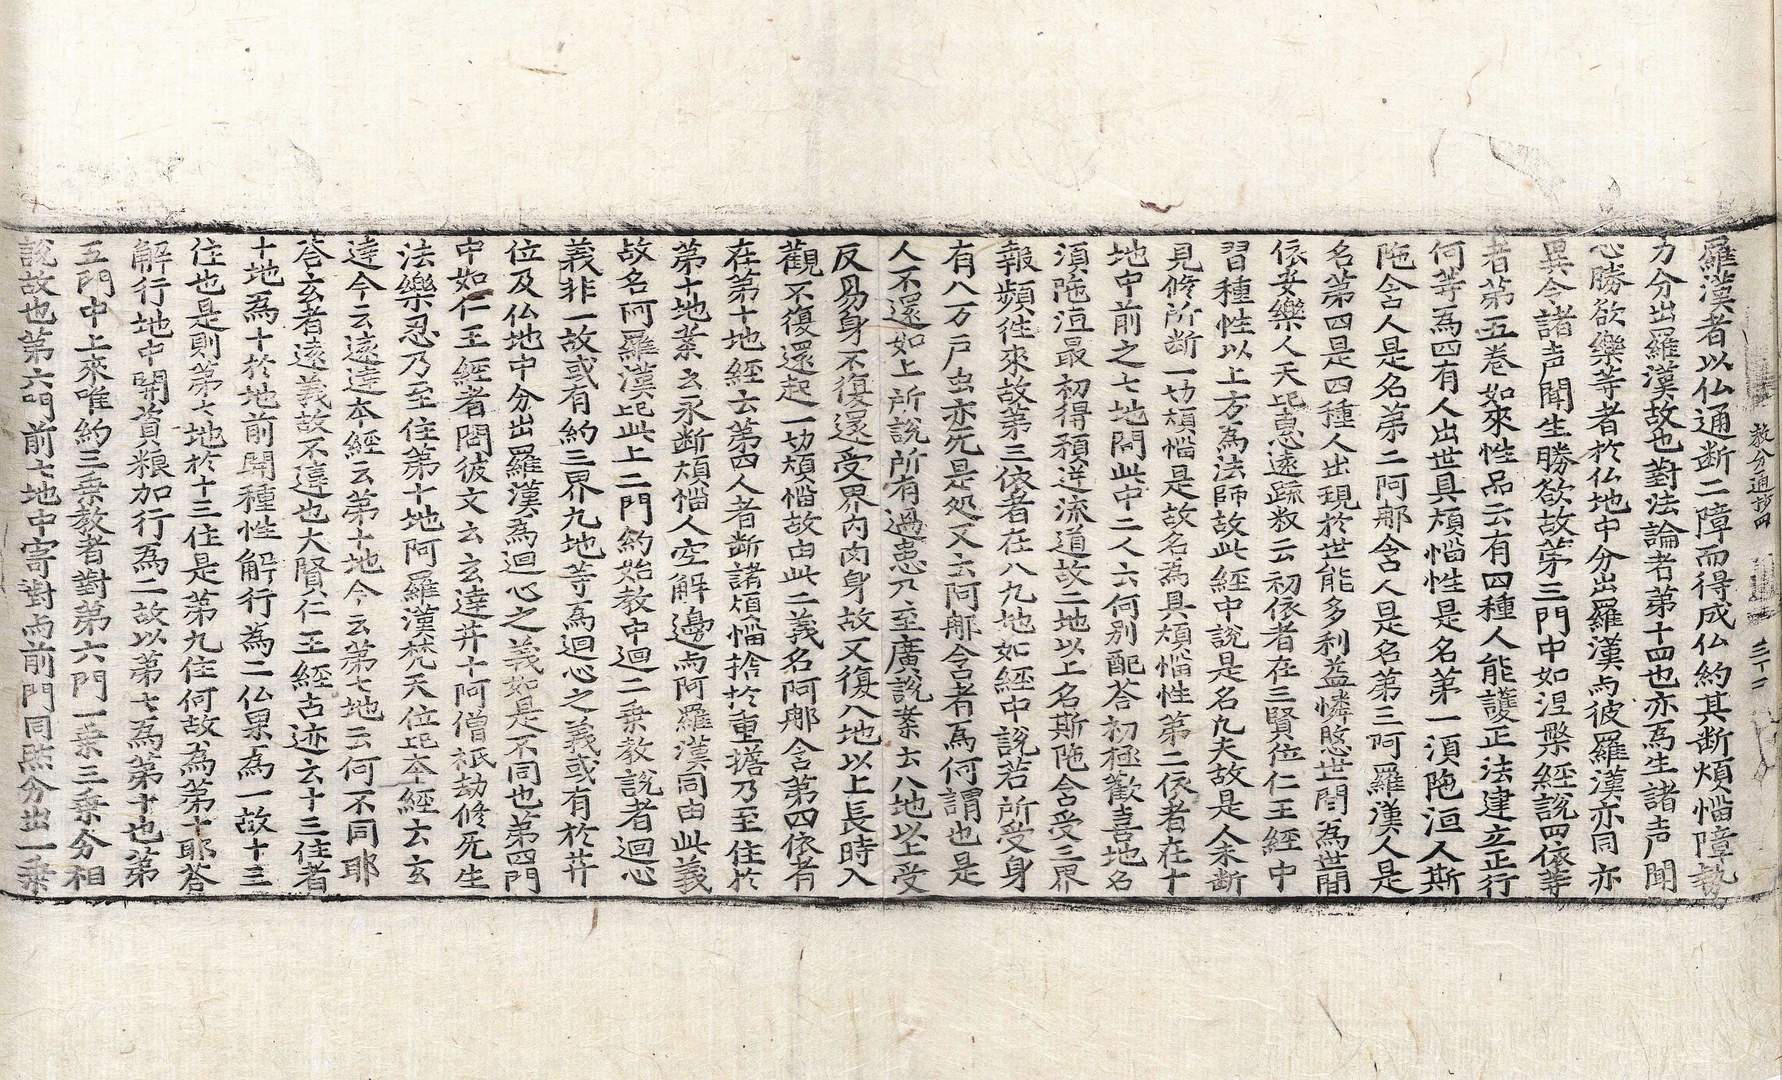 教分通抄四 三十二
羅漢者以仏通断二障而得成仏約其断煩惱障勢
力分出羅漢故也對法論者第十四也亦為生諸声聞
心勝欲樂等者於仏地中分出羅漢与彼羅漢亦同亦
異令諸声聞生勝欲故第三門中如涅槃經說四依等
者第五卷如來性品云有四種人能護正法建立正行
何等為四有人出世具煩惱性是名第一湏陁洹人斯
陁含人是名第二阿那含人是名第三阿羅漢人是
名第四是四種人出現於世能多利益憐愍世間為世間
依安樂人天記惠遠䟽敘云初依者在三賢位仁王經中
習種性以上方為法師故此經中說是名凡夫故是人未断
見修所断一切煩惱是故名為具煩惱性第二依者在十
地中前之七地問此中二人云何別配荅初極歡喜地名
湏陁洹最初得預逆流道故二地以上名斯陁含受三界
報頻徃來故第三依者在八九地如經中說若所受身
有八万戶虫亦无是処又云阿那含者為何謂也是
人不還如上所說所有過患乃至廣說案云八地以上受
反易身不復還受界內肉身故又復八地以上長時入
觀不復還起一切煩惱故由此二義名阿那含第四依者
在第十地經云第四人者断諸煩惱捨於重擔乃至住於
第十地案云永断煩惱人空解邊与阿羅漢同由此義
故名阿羅漢記此上二門約始教中迴二乗教說者迴心
義非一故或有約三界九地等為迴心之義或有於菩
位及仏地中分出羅漢為迴心之義如是不同也第四門
中如仁王經者問彼文云玄逹菩十阿僧祇劫修无生
法樂忍乃至住第十地阿羅漢梵天位記本經云玄
逹今云遠逹本經云第十地今云第七地云何不同耶
荅玄者遠義故不違也大賢仁王經古迹云十三住者
十地為十於地前開種性解行為二仏果為一故十三
住也是則第七地於十三住是第九住何故為第十耶荅
解行地中開資粮加行為二故以第七為第十也第
五門中上來唯約三乗教者對第六門一乗三乗分相
說故也第六門前七地中寄對与前門同然分出一乗